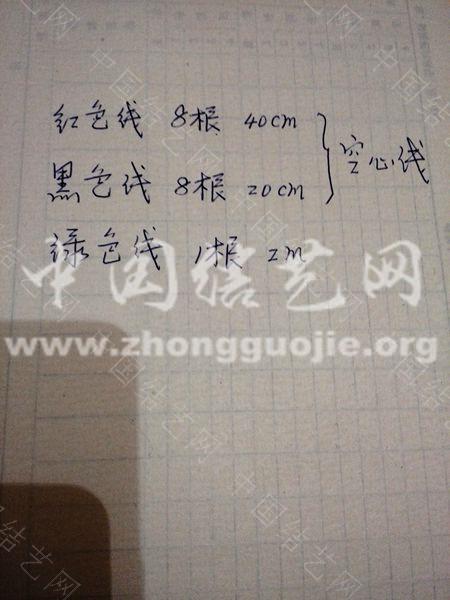 红色线 8根 40cm
黑色线 8根 20cm
空心线
绿色线 1根 2m
中国结艺网
www.zhongguojie.org